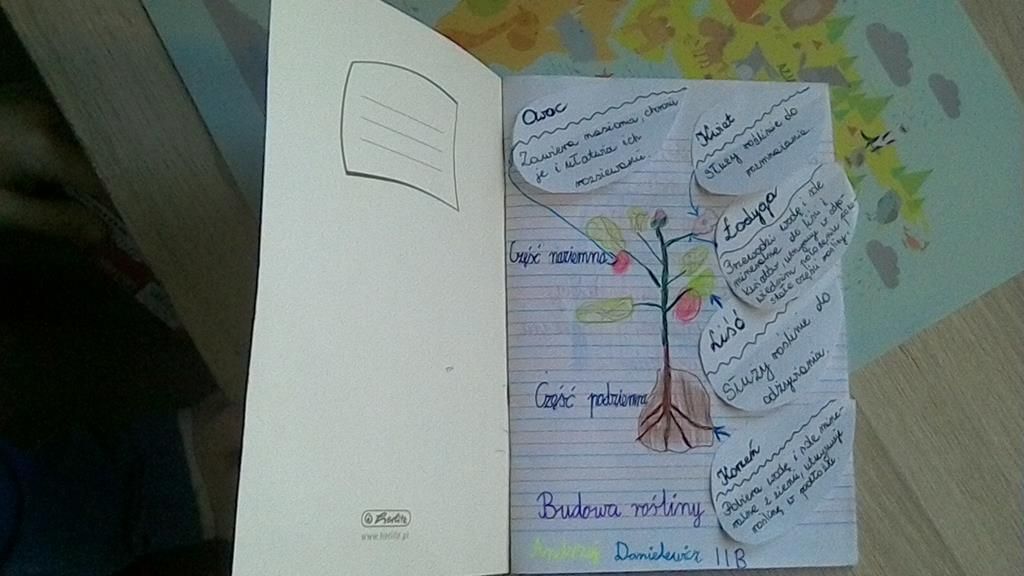 Owoc
Zawiera nasiona, chroni
je i ułatwia ich
rozsiewanie.
Kwiat
służy roślinie do
rozmnażania.
Łodyga
Przewodzi wodę i sole
mineralne do liści i
kwiatów utrzymuje w odpo-
wiednim położeniu pozo-
stałe części rośliny.
Liść
Służy roślinie do
odżywiania.
Korzeń
Pobiera wodę i sole mine-
ralne z ziemi, utrzymuje
roślinę w podłożu
Część naziemna
Część podziemna
Budowa rośliny
Danielewicz IIB
Herlitz
www.herlitz.pl